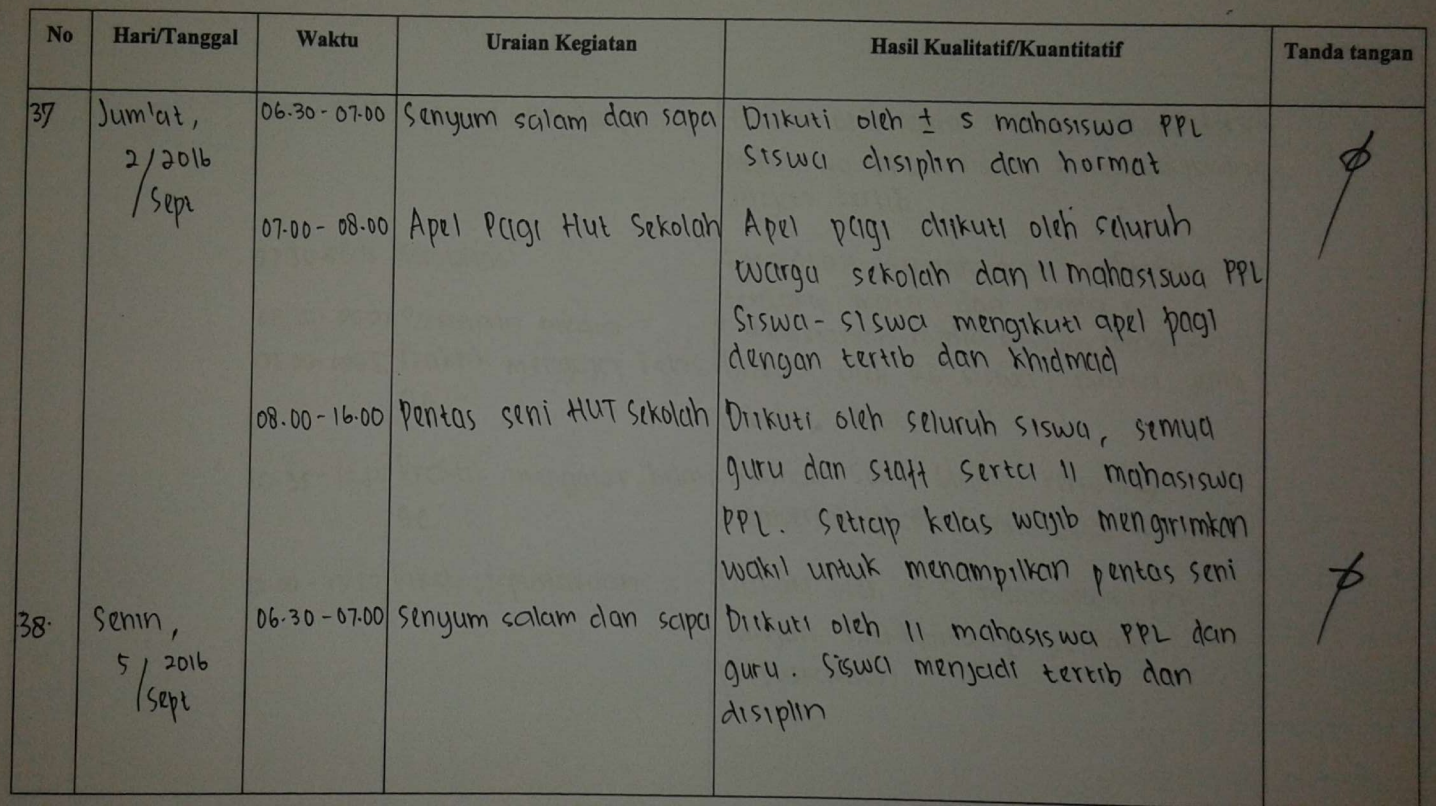 No Hari/Tanggal Waktu Uraian Kegiatan Hasil Kualitatif/Kuantitatif Tanda tangan
37 Jum'at, 06.30 - 07.00 Senyum salam dan sapa Diikuti oleh ± 5 mahasiswa PPL
2/2016 siswa disiplin dan hormat
/Sept
07.00 - 08.00 Apel Pagi Hut Sekolah Apel pagi diikuti oleh seluruh
warga sekolah dan 11 mahasiswa PPL
Siswa - siswa mengikuti apel pagi
dengan tertib dan khidmad
08.00 - 16.00 Pentas seni HUT Sekolah Diikuti oleh seluruh siswa, semua
guru dan staff serta 11 mahasiswa
PPL. Setiap kelas wajib mengirimkan
wakil untuk menampilkan pentas seni
38. Senin, 06.30 - 07.00 Senyum salam dan sapa Diikuti oleh 11 mahasiswa PPL dan
5/2016 guru. Siswa menjadi tertib dan
/Sept disiplin